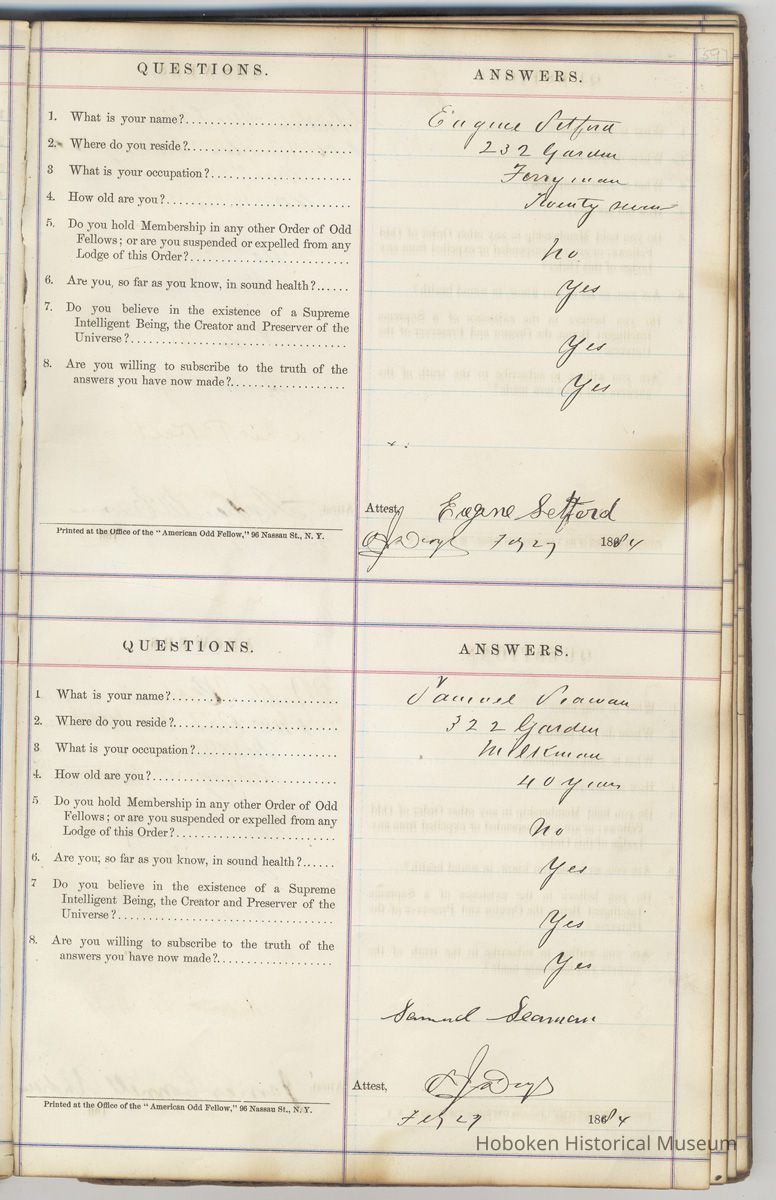 59
QUESTIONS. ANSWERS.
1. What is your name?.......................... Eugene Setford
2. Where do you reside?......................... 232 Garden
3 What is your occupation?...................... Ferryman
4. How old are you?............................. Twenty seven
5. Do you hold Membership in any other Order of Odd
Fellows; or are you suspended or expelled from any
Lodge of this Order?......................... No
6. Are you, so far as you know, in sound health?...... Yes
7. Do you believe in the existence of a Supreme
Intelligent Being, the Creator and Preserver of the
Universe?................................... Yes
8. Are you willing to subscribe to the truth of the
answers you have now made?................... Yes
Attest, Eugene Setford
Printed at the Office of the "American Odd Fellow," 96 Nassau St., N. Y.
Feby 27 1884
QUESTIONS. ANSWERS.
1 What is your name?.......................... Samuel Seaman
2. Where do you reside?......................... 322 Garden
3 What is your occupation?...................... Milkman
4. How old are you?............................. 40 years
5 Do you hold Membership in any other Order of Odd
Fellows; or are you suspended or expelled from any
Lodge of this Order?......................... No
6. Are you, so far as you know, in sound health?...... Yes
7 Do you believe in the existence of a Supreme
Intelligent Being, the Creator and Preserver of the
Universe?................................... Yes
8. Are you willing to subscribe to the truth of the
answers you have now made?................... Yes
Samuel Seaman
Attest,
Printed at the Office of the "American Odd Fellow," 96 Nassau St., N. Y.
Feby 27 1884
Hoboken Historical Museum